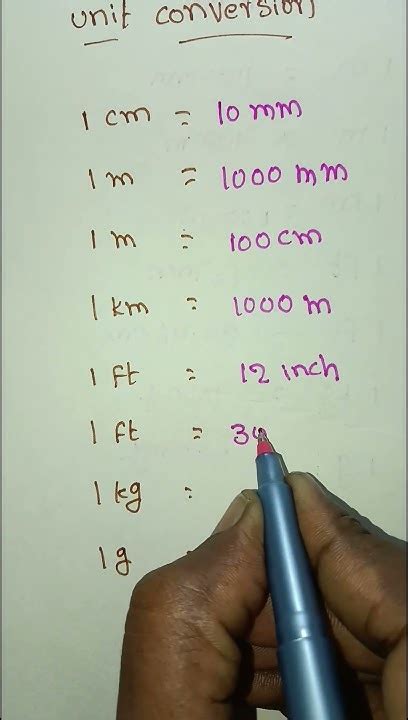 unit conversions
1 cm = 10 mm
1 m = 1000 mm
1 m = 100 cm
1 km = 1000 m
1 ft = 12 inch
1 ft = 30
1 kg =
1 g